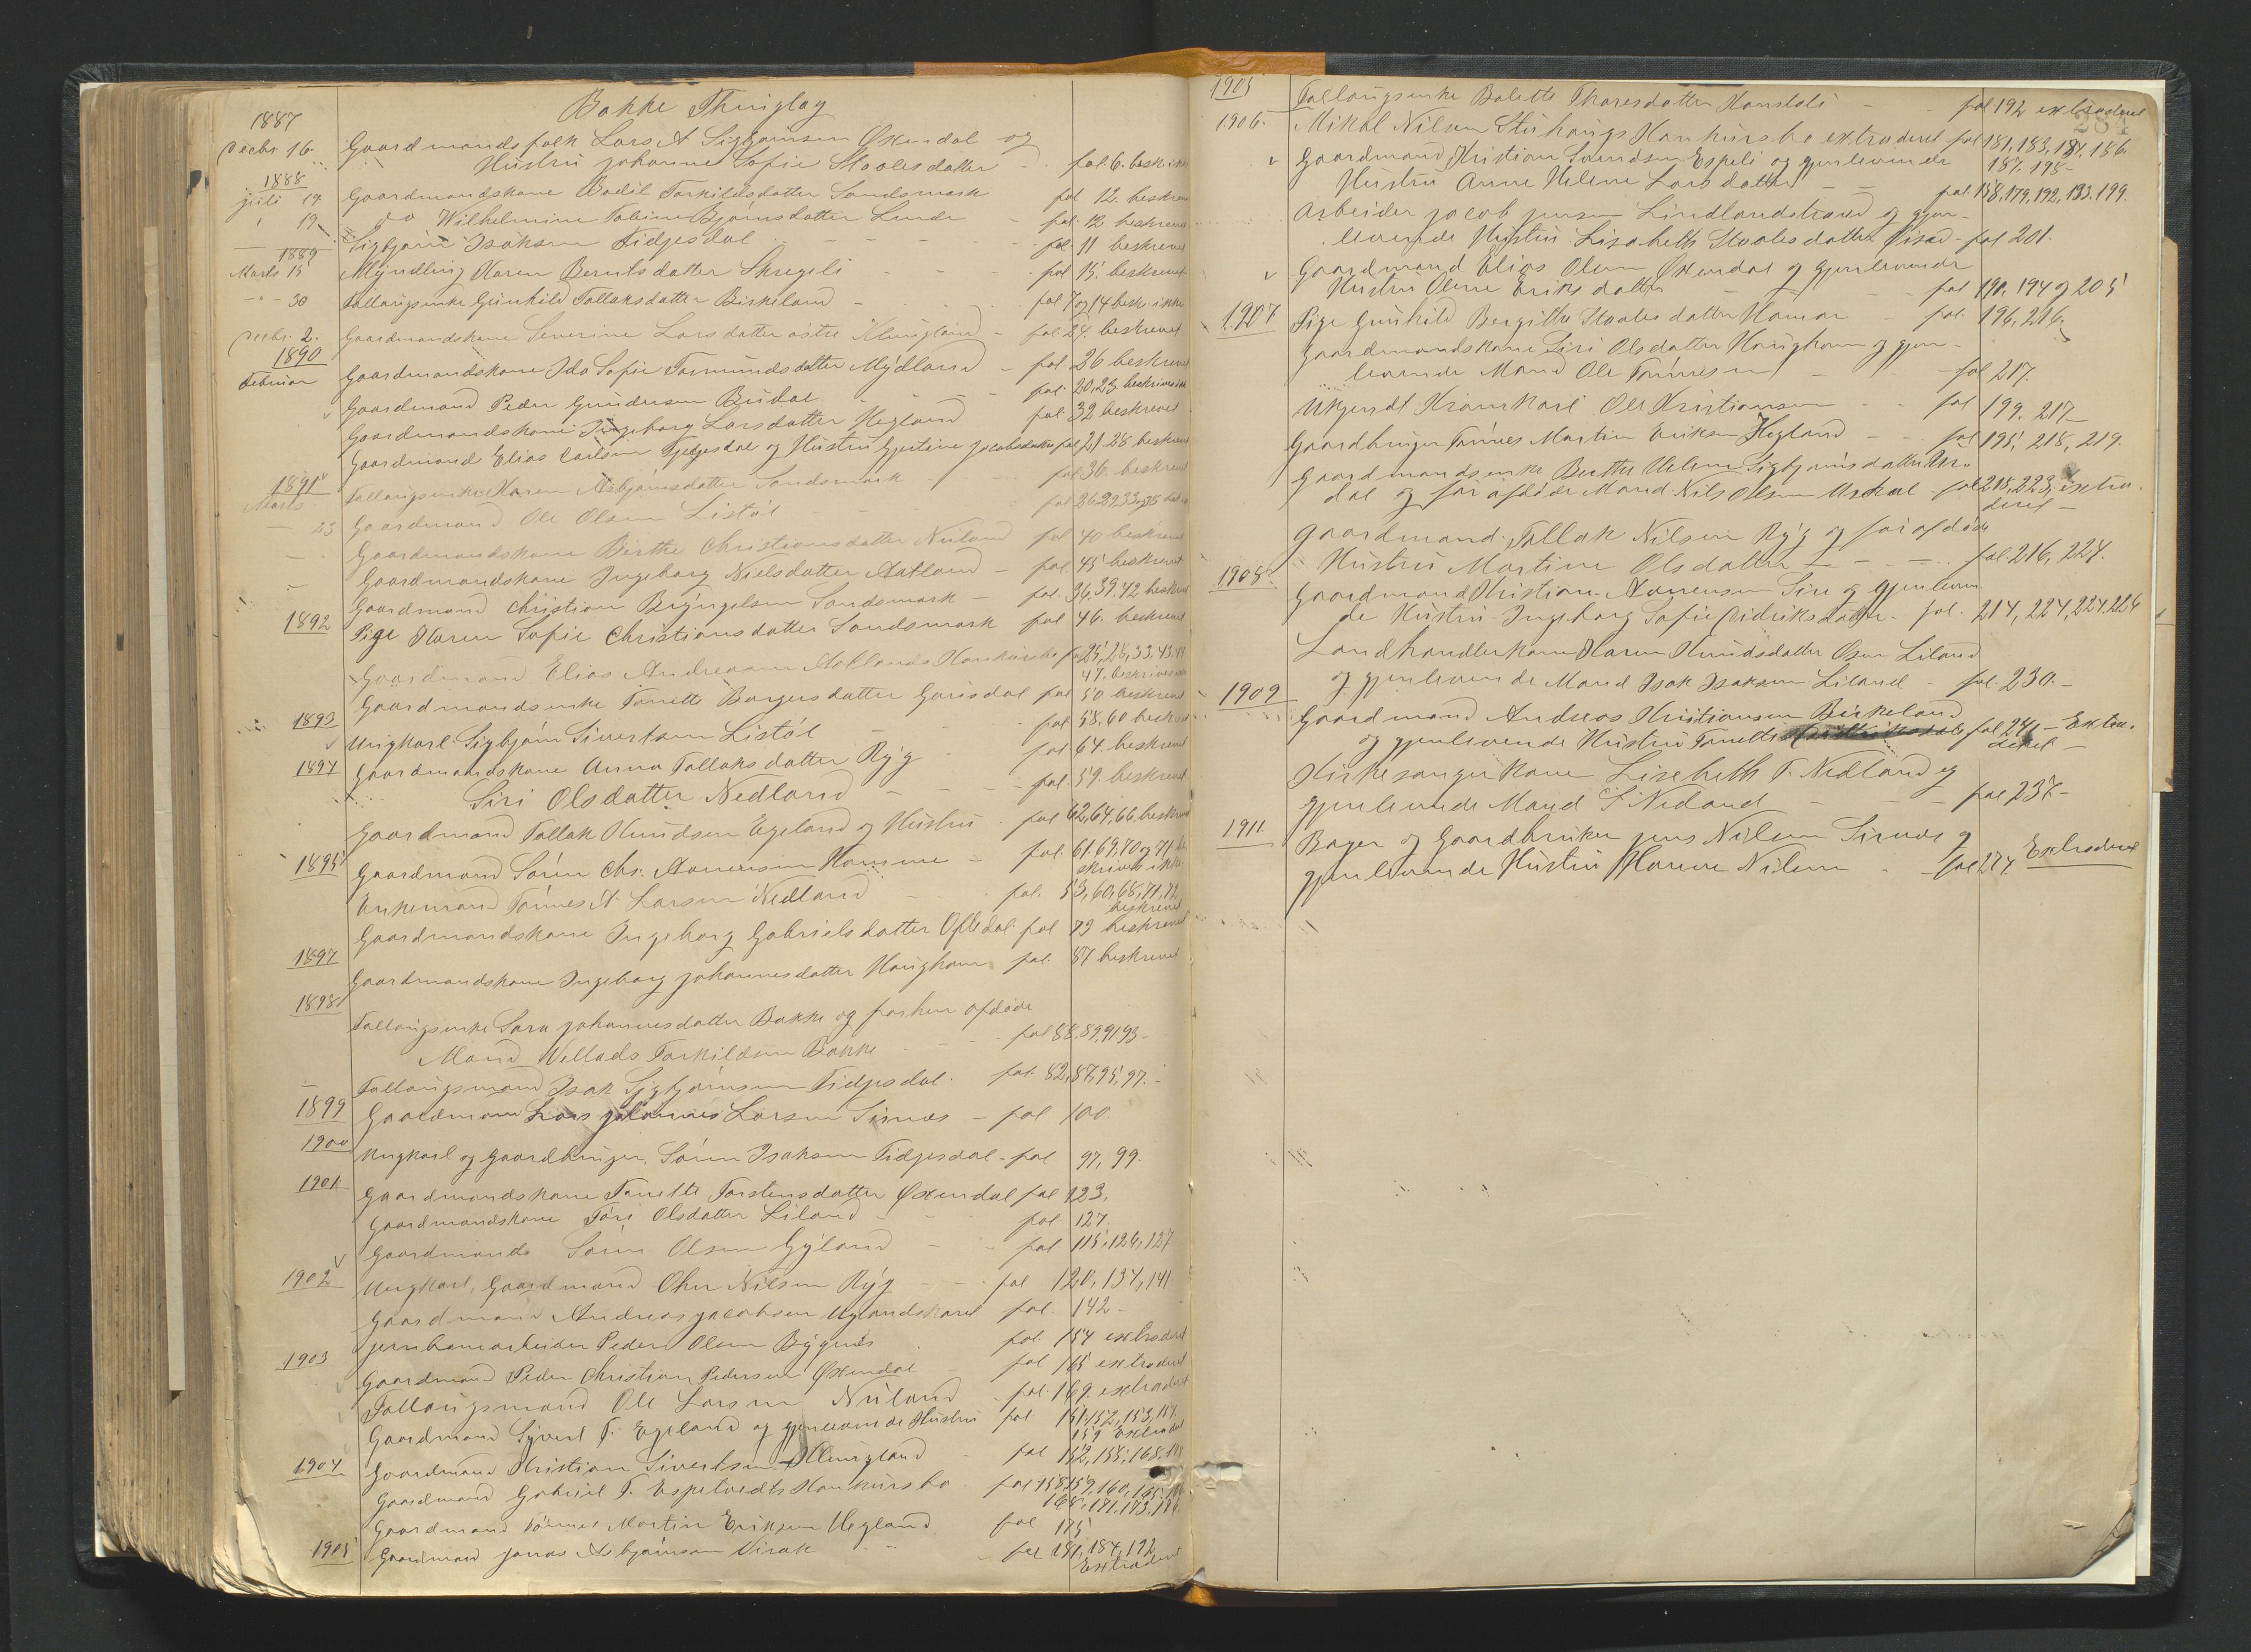 Bakke Thinglag
1887
Decbr 16. Gaardmandsfolk Lars A Sigbjørnsen Øxendal og
Hustru Johanne Sofie Staalesdatter fol. 6. besk ikke
1888
Juli 19 Gaardmandskone Bodil Tarkildsdatter Sandsmark fol 12. beskrevet
" 19 do Wilhelmine Tobine Bjørnsdatter Lunde fol 12 beskrevet
Sigbjørn Isaksen Fidjesdal fol. 11 beskrevet
1889
Marts 15 Myndling Karen Berntsdatter Skregeli fol 15. beskrevet
30 Føllaugsenke Gunhild Tollaksdatter Birkeland fol 7 og 14 besk. ikke
Decbr. 2. Gaardmandskone Severine Larsdatter østre Klungland fol. 24. beskrevet
1890
Februar Gaardmandskone Ida Sofie Tormundsdatter Mydland fol 26 beskrevet
Gaardmand Peder Gundersen Budal fol. 20, 23 beskrives ikke
Gaardmandskone Ingeborg Larsdatter Hegland fol. 32 beskrevet
Gaardmand Elias Carlsen Fjedjesdal og Hustru Gjertine Jacobsdatter fol 21. 28. beskrevet
1891
Marts Føllaugsenke Karen Asbjørnsdatter Sandsmark fol 36. beskrevet
23 Gaardmand Ole Olsen Listøl fol 26. 29, 33, og 35
Gaardmandskone Birthe Christiansdatter Nuland fol 40 beskrevet
Gaardmandskone Ingeborg Nielsdatter Aatland fol. 45 beskrevet
Gaardmand Christian Bryngelsen Sandsmark fol. 36, 39, 42 beskrevet
1892 Pige Karen Sofie Christiansdatter Sandsmark fol 46. beskrevet
Gaardmand Elias Andreasen Aatlands Konkursbo fol 25, 28, 33, 43, 44
47. beskrives ikke
Gaardmandsenke Tonette Børgersdatter Gørisdal fol 50 beskrevet
1893 Ungkarl Sigbjørn Sivertsen Listøl fol 58, 60 beskrevet
1894 Gaardmandskone Anna Tollaksdatter Ryg fol 64. beskrevet
Siri Olsdatter Nedland fol. 59. beskrevet
Gaardmand Tollak Knudsen Egeland og Hustru fol 62, 64, 66, beskrevet
1895 Gaardmand Søren Chr. Aanensen Hamme fol. 61. 69, 70 og 71 be
skrives ikke
Enkemand Tønnes A Larsen Nedland fol. 53, 60, 68, 71, 72
beskrevet
Gaardmandskone Ingeborg Gabrielsdatter Oftedal fol 79 beskrevet
1897 Gaardmandskone Ingeborg Johannesdatter Haugham fol. 87 beskrevet
1898 Føllaugsenke Sara Johannesdatter Bakke og forhen afdøde
Mand Vellads Tarkildsen Bakke fol 88, 89, 91. 93-
Føllaugsmand Isak Sigbjørnsen Fidjesdal. fol. 82, 87, 95, 97.-
1899 Gaardmand Lars Johannes Larsen Sirnes fol 100
1900 Ungkarl og Gaardbruger Søren Isaksen Fidjesdal fol 97, 99.
1901 Gaardmandskone Tonette Torstensdatter Øxendal fol 123,
Gaardmandskone Tori Olsdatter Liland fol 127.
Gaardmands Søren Olsen Gyland fol 115, 126, 127
1902 Ungkarl, Gaardmand Oher Nilsen Ryg fol 120, 134, 141
Gaardmand Andreas Jacobsen Uglandskaret fol. 142-
Jernbanearbeider Peder Olsen Bygnes fol. 154 extraderet
1903 Gaardmand Peder Christian Pedersen Øxendal fol 165 extraderet
Føllaugsmand Ole Larsen Nuland fol. 169. extraderet
Gaardmand Syvert T. Egeland og gjenlevende Hustru fol 151, 152, 153, 157.
159 Extraderet
1904 Gaardmand Kristian Sivertsen Klungland fol 152, 155, 168,
Gaardmand Gabriel T. Espetvedts Konkursbo fol 158, 159, 160, 165,
168, 171, 173,
Gaardmand Tønnes Martin Eriksen Hegland fol 175
1905 Gaardmand Jonas Asbjørnsen Virak fol 181, 184, 192
Extraderet
284
1905 Føllaugsenke Bolette Tharesdatter Konstali fol 192 extraderet
1906. Mikal Nilsen Stuhaugs Konkursbo extraderet fol 181, 183, 184, 186
187, 195-
Gaardmand Kristian Svendsen Espeli og gjenlevende
Hustru Anne Helene Larsdatter fol. 158, 179, 192, 193. 199.
Arbeider Jacob Jensen Lindlandstrand og gjen-
levende Hustru Lisabeth Staalesdatter fol 201.
Gaardmand Elias Olsen Øxendal og gjenlevende
Hustru Olene Eriksdatter fol 190, 194 og 205
1907. Pige Gunhild Bergitte Staalesdatter Hamar fol. 196, 216.
Gaardmandskone Siri Olsdatter Haugham og gjen-
levende Mand Ole Tønnesen fol 217.
Ukjendt Kramkarl Ole Kristiansen fol 199. 217-
Gaardbruger Tønnes Martin Eriksen Hegland fol 195, 218, 219.
Gaardmandsenke Berthe Helene Sigbjørnsdatter Ur-
dal og før afdøde Mand Nils Olsen Urdal fol 218, 223, extra-
deret-
Gaardmand Tollak Nilsen Ryg og før afdøde
Hustru Martine Olsdatter fol. 216, 224.
1908. Gaardmand Kristian Aanensen Sire og gjenleven
de Hustru Ingeborg Sofie Didriksdatter fol. 214, 224, 224, 226
Landhandlerkone Karen Knudsdatter Osen Liland
og gjenlevende Mand Isak Isaksen Liland fol. 230.-
1909 Gaardmand Andreas Kristiansen Birkeland
og gjenlevende Hustru Tonette fol 241- Extra-
deret-
Kirkesangerkone Lisebeth T. Nedland og
gjenlevende Mand S Nedland fol 237-
1911. Bager og Gaardbruker Jens Nilsen Sirnes og
gjenlevende Hustru Karen Nilsen fol 274 Extraderet